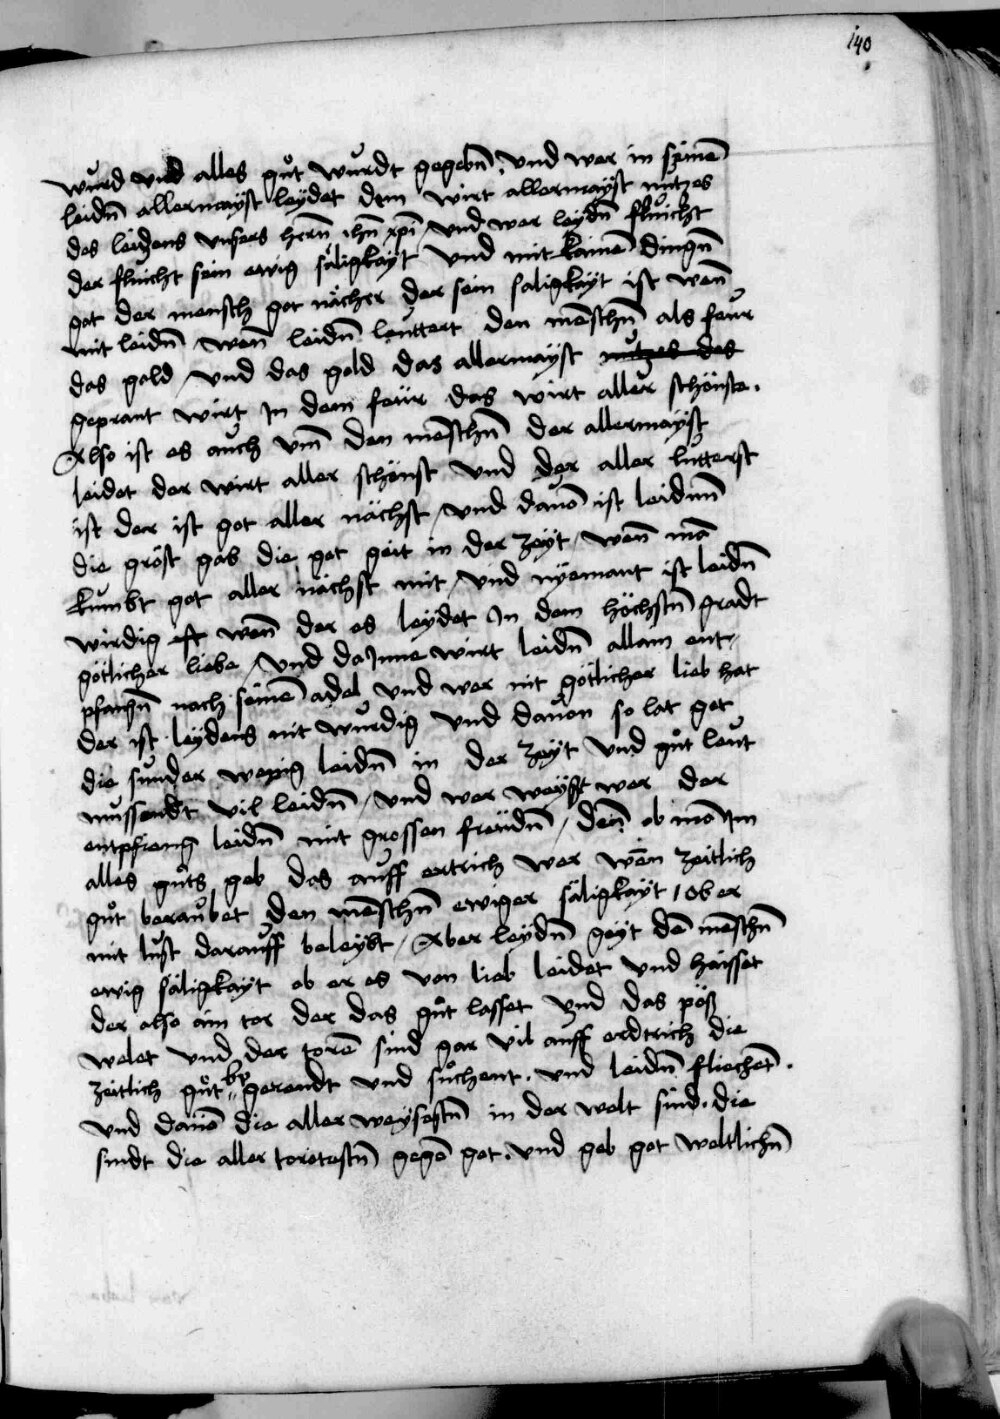 140
wurd und alles gůt wurdt gegebn̄. und wer in seinē
leidn̄ allermayst leydet dem wirt allermayst nützes
des leidens unsers herrn̄ ihū xp̄i / und wer leydn̄ fluicht
der fluicht sein ewig säligkayt Und mit kainē dingn̄
get der mensch got nächer der sein saligkayt ist wen̄
mit leidn̄ / wen̄ leidn̄ leuttert den mēschn̄ als feur
das gold / und das gold das allermayst nutzes des
geprant wirt Jn dem feür das wirt aller schönste.
Also ist es auch um̄ den mēschn̄ der allermayst
leidet der wirt aller schönst und der aller lutterst
ist der ist got aller nächst / und dauō ist leidnn̄
die gröst gab die got geit in der zeyt / wen̄ mā
kumbt got aller nächst mit / und nyemant ist leidn̄
wirdig wen̄ der es leydet Jn dem höchstn̄ gradt
götlicher liebe / und daJnne wirt leidn̄ allain ent-
pfangn̄ nach seinē adel und wer nit götlicher lieb hat
der ist leydens nit wurdig und dauon so lat got
die sunder wenig leidn̄ in der zeyt und gůt leut
mussendt vil leidn̄ / und wer weyß wer der
entpfieng leidn̄ mit grossen freudn̄ / den̄ ob mā Jm
alles gůts geb das auff ertrich wer wēn zeitlich
gůt beraubet den mēschn̄ ewiger säligkayt / ob er
mit lust darauff beleybt / Aber leydn̄ geyt dē mēschn̄
ewig säligkayt ob er es von lieb leidet und haisset
der also ain tor der das gůt lasset und das pöß
welet und der torē sind gar vil auff erdtrich die
zeitlich gůt be gerendt und sůchent. und leidn̄ fliechet.
und dauō die aller weysestn̄ in der welt sind. die
sindt die aller toretestn̄ gegē got. und geb got weltlichn̄